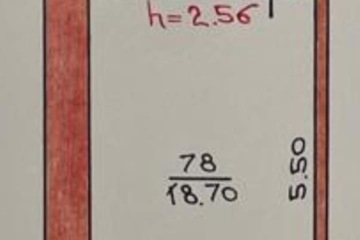 h=2.56
78
18.70
5.50